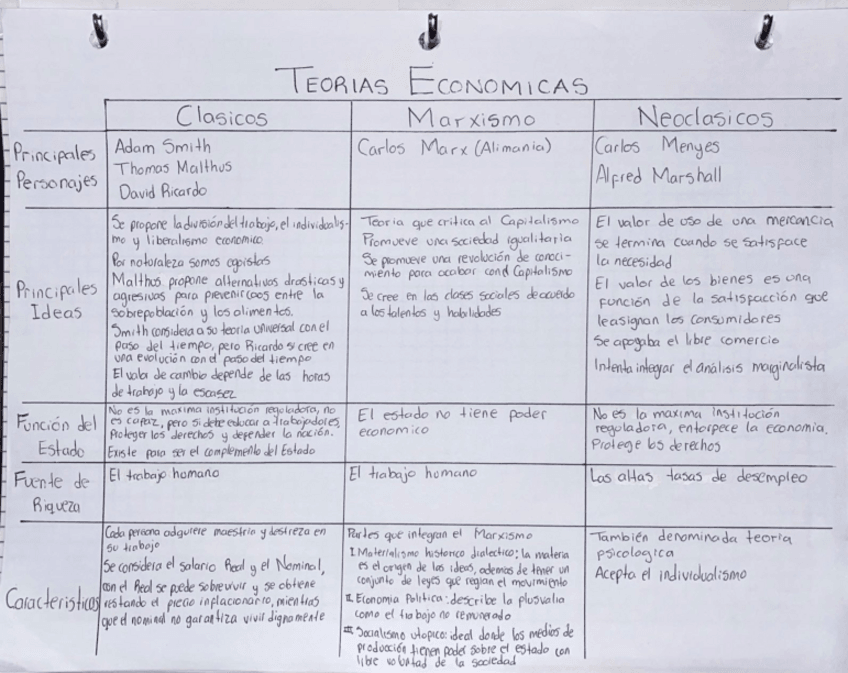 TEORIAS ECONOMICAS
Clasicos
Marxismo
Neoclasicos
Principales
Personajes
Adam Smith
Thomas Malthus
David Ricardo
Carlos Marx (Alimania)
Carlos Menyes
Alfred Marshall
Principales
Ideas
Se propone la división del trabajo, el individualis-
mo y liberalismo economico
Por naturaleza somos egoistas
Malthus propone alternativas drasticas y
agresivas para prevenir caos entre la
sobrepoblación y los alimentos.
Smith considera a su teoria universal con el
paso del tiempo, pero Ricardo si cree en
una evolución con el paso del tiempo
El valor de cambio depende de las horas
de trabajo y la escasez
Teoria que critica al Capitalismo
Promueve una sociedad igualitaria
Se promueve una revolución de conoci-
miento para acabar con el Capitalismo
Se cree en las clases sociales de acuerdo
a los talentos y habilidades
El valor de uso de una mercancia
se termina cuando se satisface
la necesidad
El valor de los bienes es una
función de la satisfacción que
le asignan los consumidores
Se apoyaba el libre comercio
Intenta integrar el análisis marginalista
Función del
Estado
No es la maxima institución reguladora, no
es capaz, pero si debe educar a trabajadores,
Proteger los derechos y defender la nación.
Existe para ser el complemento del Estado
El estado no tiene poder
economico
No es la maxima institución
reguladora, entorpece la economia.
Protege los derechos
Fuente de
Riqueza
El trabajo humano
El trabajo humano
Las altas tasas de desempleo
Caracteristicas
Cada persona adquiere maestria y destreza en
su trabajo
Se considera el salario Real y el Nominal,
con el Real se puede sobrevivir y se obtiene
restando el precio inflacionario, mientras
que el nominal no garantiza vivir dignamente
Partes que integran el Marxismo
I. Materialismo historico dialectico: la materia
es el origen de las ideas, ademas de tener un
conjunto de leyes que regian el movimiento
II. Economia Politica: describe la plusvalia
como el trabajo no remunerado
III. Socialismo utopico: ideal donde los medios de
producción tienen poder sobre el estado con
libre voluntad de la sociedad
También denominada teoria
psicologica
Acepta el individualismo